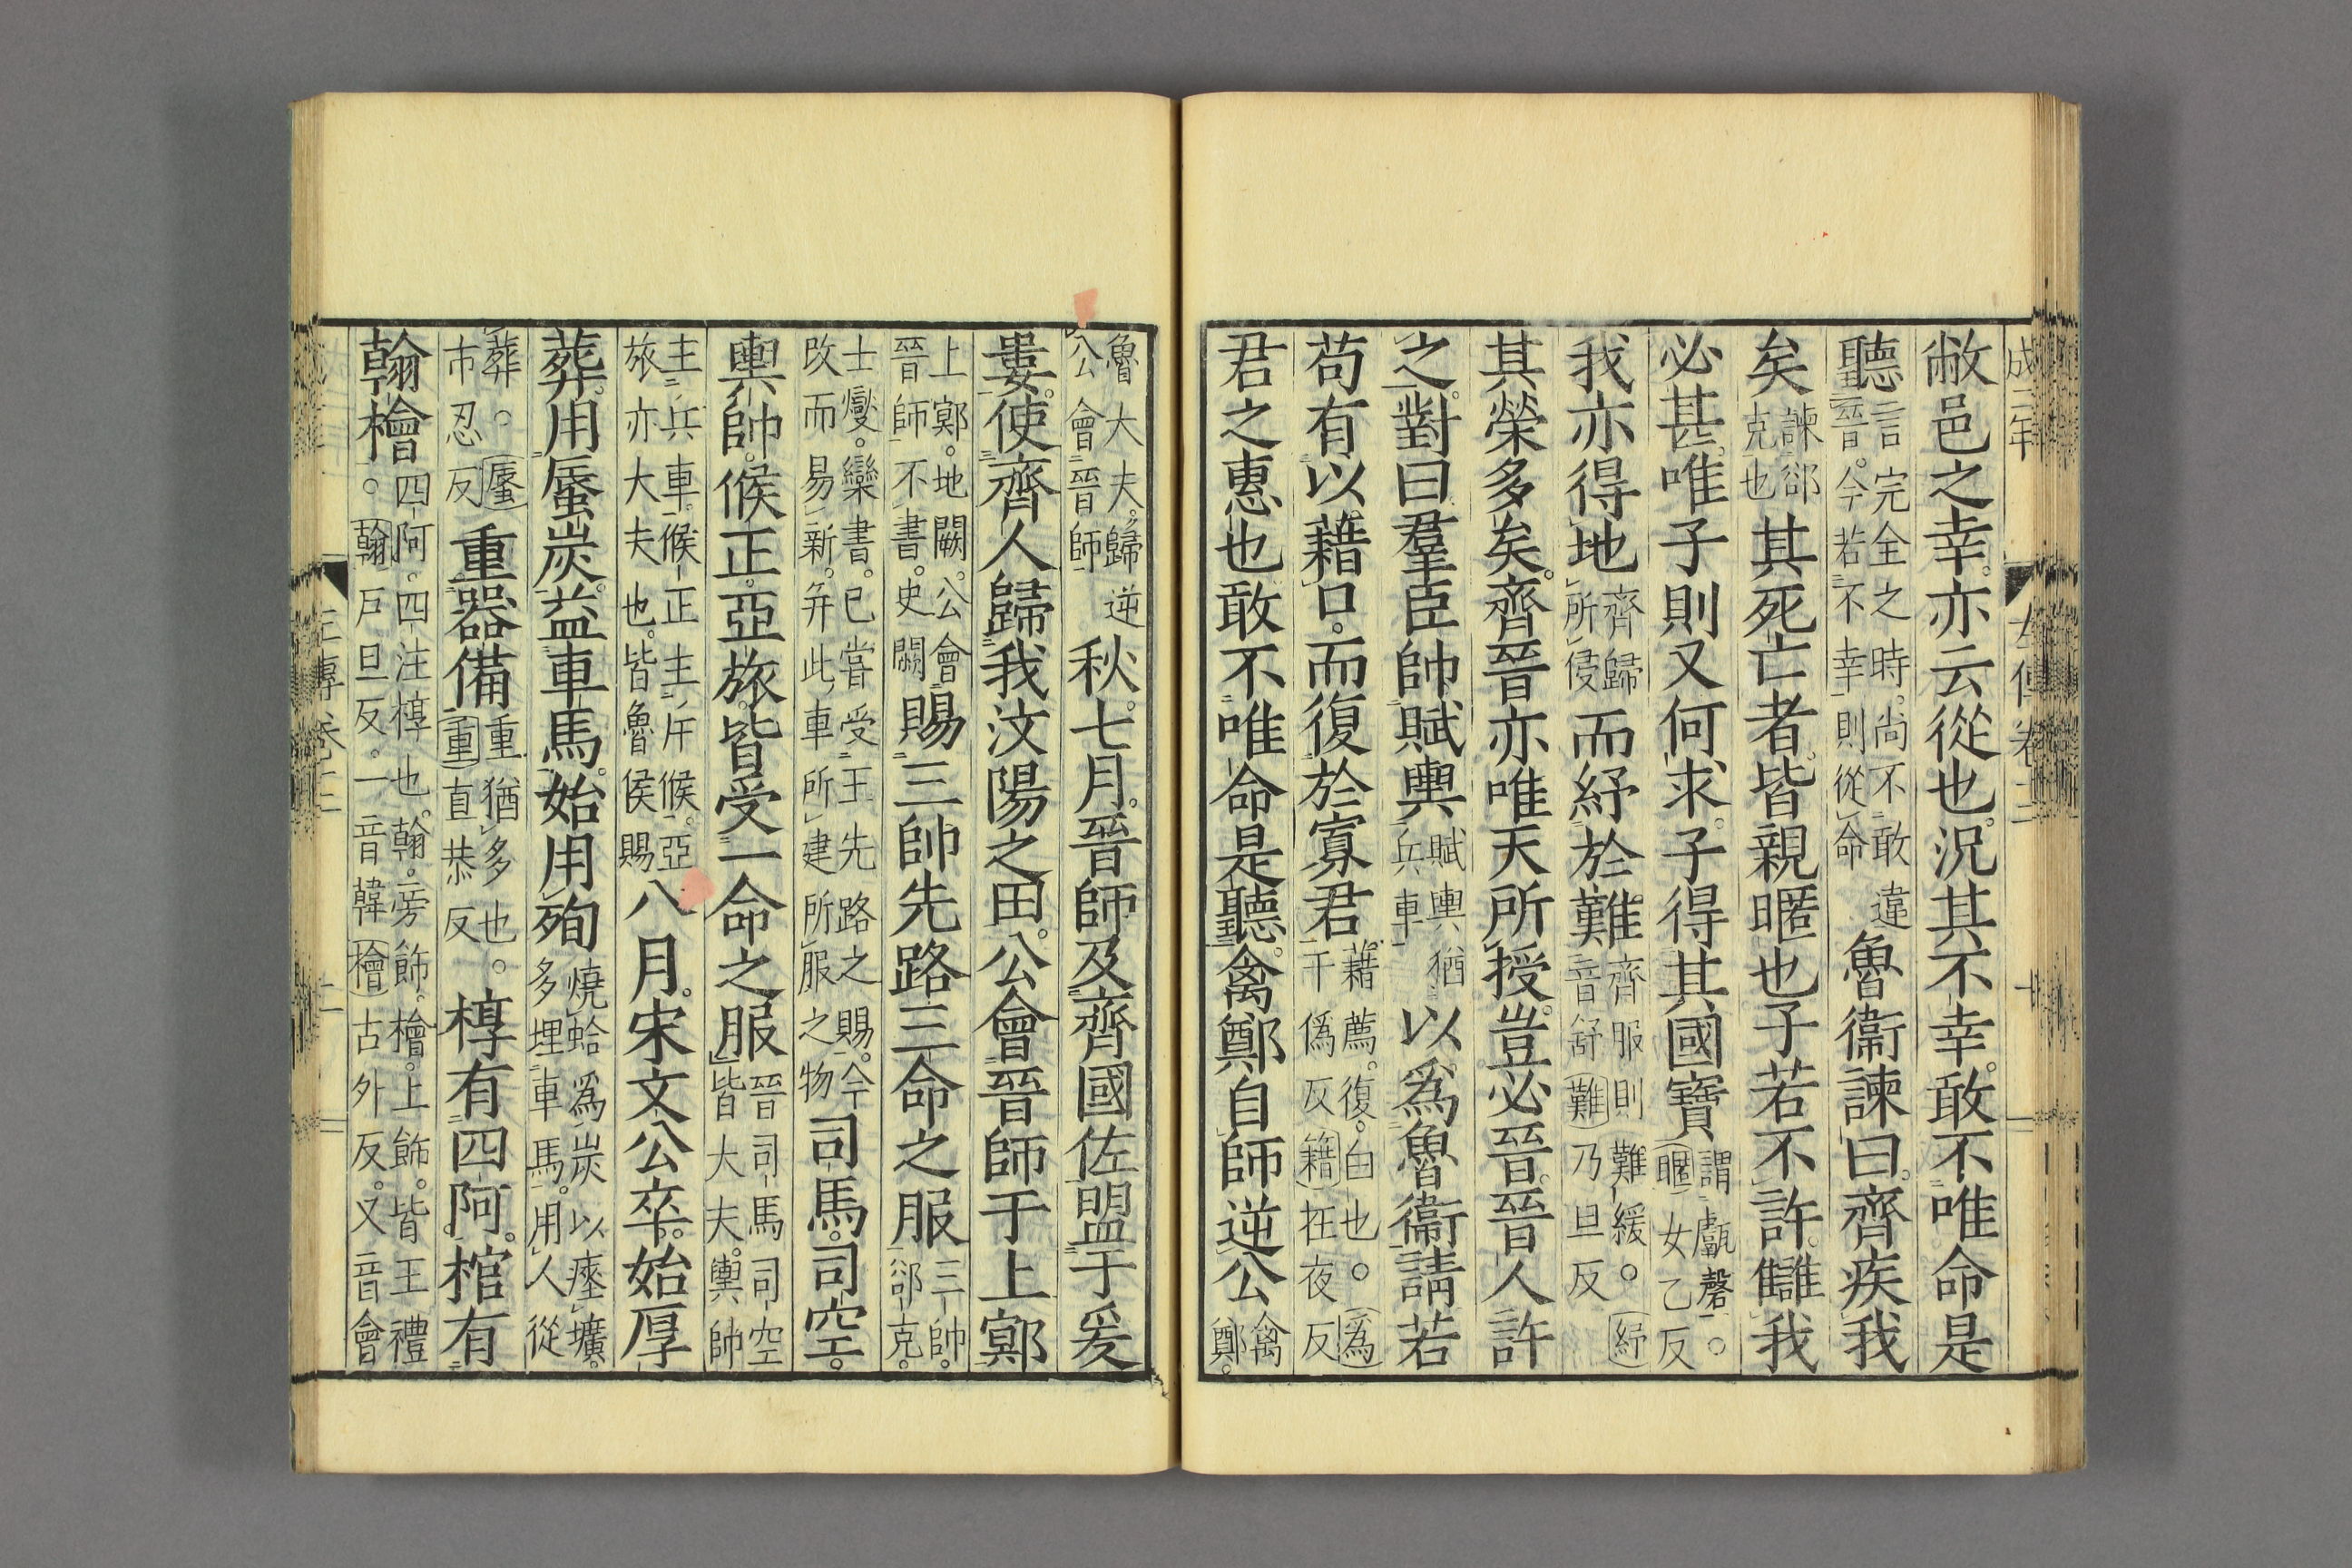 成二年
敝邑之幸。亦云從也。況其不幸。敢不唯命是
聽言完全之時。尚不敢違晉。今若不幸則從命魯衞諫曰。齊疾我
矣諫郤克也其死亡者。皆親暱也子若不許。讎我
必甚。唯子則又何求。子得其國寶謂甗磬。暱女乙反
我亦得地齊歸所侵而紓於難齊服則難緩。紓音舒難乃旦反
其榮多矣。齊晉亦唯天所授。豈必晉。晉人許
之。對曰羣臣帥賦輿賦輿猶兵車以爲魯衞請若
苟有以藉口。而復於寡君藉薦。復。白也。爲于僞反籍在夜反
君之惠也敢不唯命是聽。禽鄭自師逆公禽鄭。
魯大夫。歸逆公會晉師秋。七月。晉師及齊國佐盟于爰
婁。使齊人歸我汶陽之田。公會晉師于上鄍
上鄍。地闕。公會晉師不書。史闕賜三帥先路三命之服三帥。郤克。
士燮。欒書。已嘗受王先路之賜。今改而易新。并此車所建所服之物司馬。司空。
輿帥。候正。亞旅。皆受一命之服晉司馬司空皆大夫。輿帥
主兵車。候正主斥候。亞旅亦大夫也。皆魯侯賜八月。宋文公卒。始厚
葬。用蜃炭。益車馬。始用殉燒蛤爲炭以瘞壙。多埋車馬。用人從
葬。蜃市忍反重器備重猶多也。重直恭反椁有四阿。棺有
翰檜四阿。四注椁也。翰。旁飾。檜。上飾。皆王禮。翰戶旦反。一音韓檜古外反。又音會